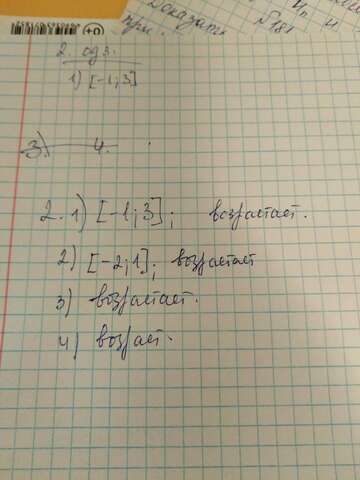 Доказать
при.
№181
Ип. И.
2. одз.
1) [-1;3]
3) 4.
2. 1) [-1;3]; возрастает.
2) [-2;1]; возрастает
3) возрастает.
4) возраст.